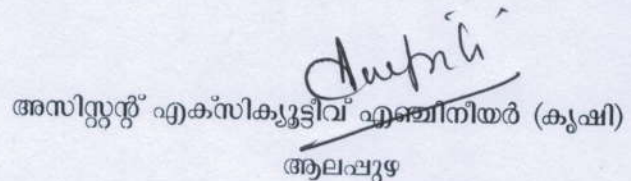 അസിസ്റ്റന്റ് എക്സിക്യൂട്ടീവ് എഞ്ചിനീയർ (കൃഷി)
ആലപ്പുഴ